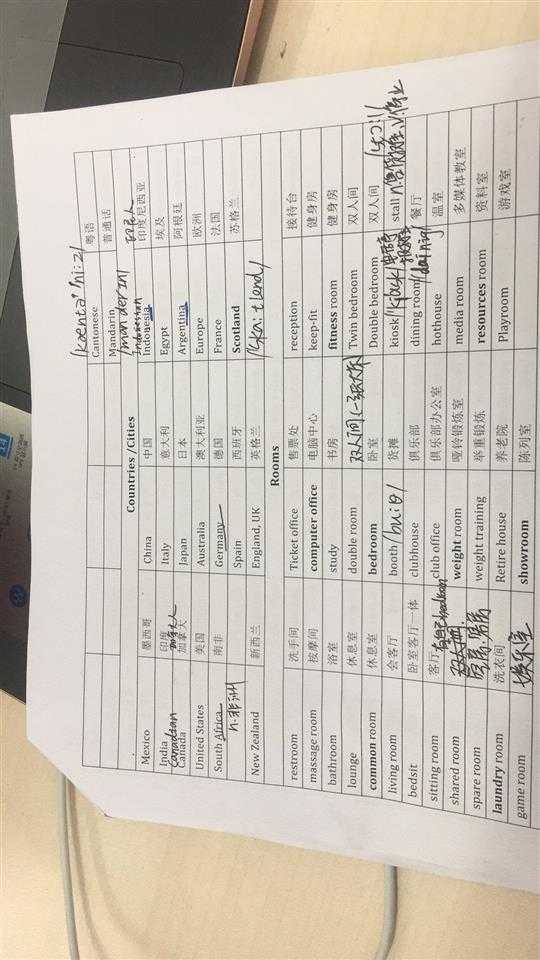 /kæntə'ni:z/
Cantonese 粤语
Mandarin 普通话
/mandərɪn/
Countries /Cities
Mexico 墨西哥 China 中国 Indonesian Indonesia 印尼人 印度尼西亚
India 印度 Italy 意大利 Egypt 埃及
Canadian Canada 加拿大人 加拿大 Japan 日本 Argentina 阿根廷
United States 美国 Australia 澳大利亚 Europe 欧洲
South Africa 南非 Germany 德国 France 法国
n.非洲 Spain 西班牙 Scotland 苏格兰
New Zealand 新西兰 England, UK 英格兰
Rooms
restroom 洗手间 Ticket office 售票处 reception 接待台
massage room 按摩间 computer office 电脑中心 keep-fit 健身房
bathroom 浴室 study 书房 fitness room 健身房
lounge 休息室 double room 双人间 Twin bedroom 双人间
common room 休息室 bedroom 卧室 Double bedroom 双人间
living room 会客厅 booth 货摊 kiosk stall
bedsit 卧室客厅一体 clubhouse 俱乐部 dining room 餐厅
sitting room 客厅 club office 俱乐部办公室 hothouse 温室
shared room 双人间 weight room 哑铃锻炼室 media room 多媒体教室
spare room 客房 weight training 举重锻炼 resources room 资料室
laundry room 洗衣间 Retire house 养老院 Playroom 游戏室
game room 娱乐室 showroom 陈列室